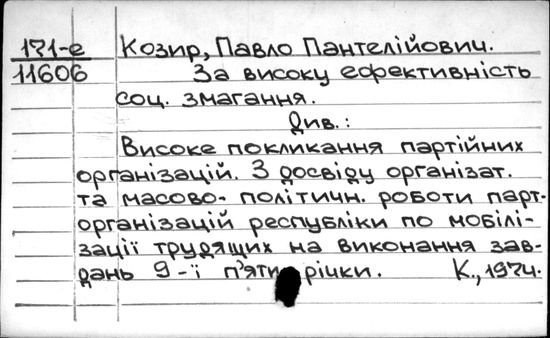 171-е Козир, Павло Пантелійович.
11606 За високу ефективність
соц. змагання.
Див.:
Високе покликання партійних
організацій. З досвіду організат.
та масово-політичн. роботи парт-
організацій республіки по мобілі-
зації трудящих на виконання зав-
дань 9-ї п'ятирічки. К., 1974.